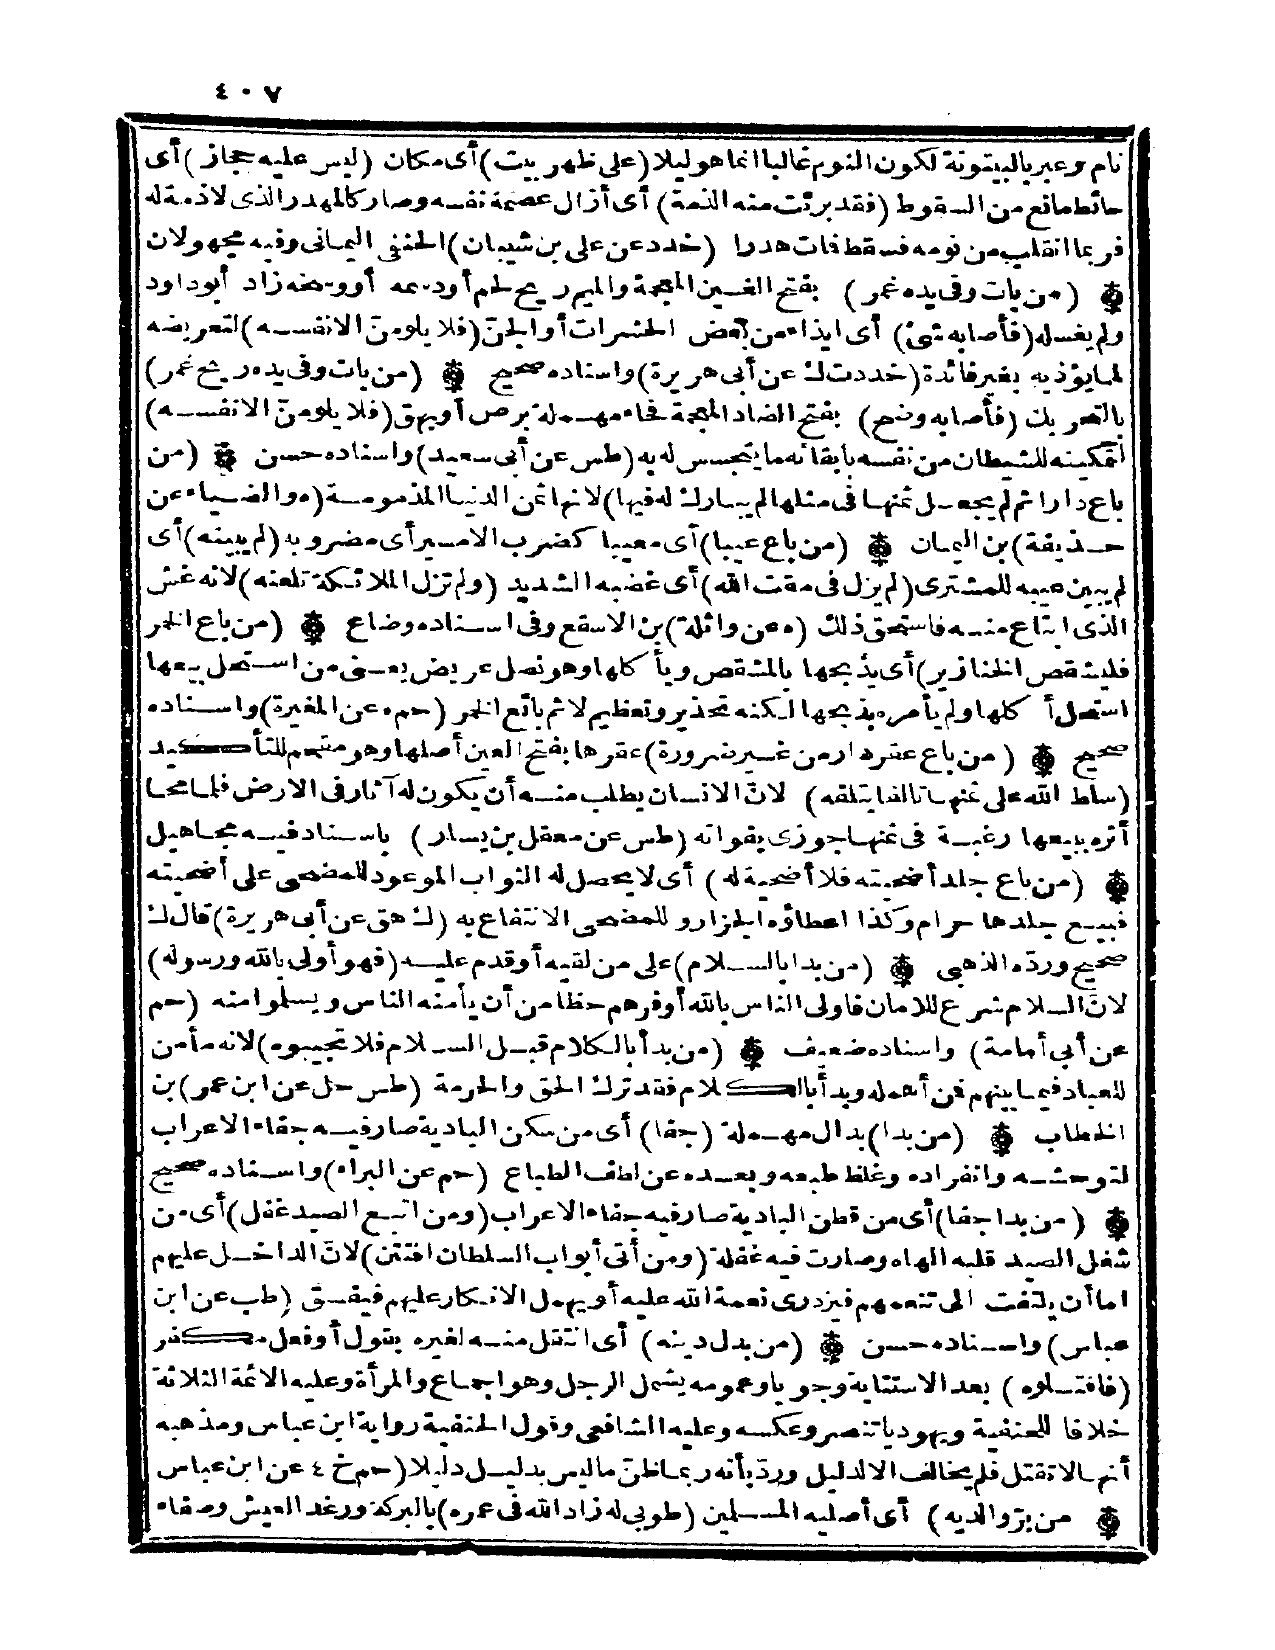 ٤٠٧
نام وعبر بالبيتوتة لكون النوم غالبا انما هو ليلا (على ظهر بيت) أى مكان (ليس عليه حجاز) أى
حائط مانع من السقوط (فقد برئت منه الذمة) أى أزال عصمة نفسه وصار كالمهدر الذى لا ذمة له
فربما انقلب من نومه فسقط فمات هدرا (خدد عن على بن شيبان) الحنفى اليمانى وفيه مجهولان
۞ (من بات وفى يده غمر) بفتح الغين المعجمة والميم ريح لحم أو دسمه أو وضره زاد أبو داود
ولم يغسله (فأصابه شئ) أى ايذاء من بعض الحشرات أو الجن (فلا يلومنّ الا نفسه) لتعريضه
لما يؤذيه بغير فائدة (خددت ك عن أبى هريرة) واسناده صحيح ۞ (من بات وفى يده ريح غمر)
بالتحريك (فأصابه وضح) بفتح الضاد المعجمة فحاء مهملة برص أو بهق (فلا يلومنّ الا نفسه)
لتمكينه للشيطان من نفسه بابقائه ما يتحسس له به (طس عن أبى سعيد) واسناده حسن ۞ (من
باع دارا ثم لم يجعل ثمنها فى مثلها لم يبارك له فيها) لانها ثمن الدنيا المذمومة (ه والضياء عن
حذيفة) بن اليمان ۞ (من باع عيبا) أى معيبا كضرب الامير أى مضروبه (لم يبينه) أى
لم يبين عيبه للمشترى (لم يزل فى مقت الله) أى غضبه الشديد (ولم تزل الملائكة تلعنه) لانه غش
الذى ابتاع منه فاستحق ذلك (ه عن واثلة) بن الاسقع وفى اسناده وضاع ۞ (من باع الخمر
فليشقص الخنازير) أى يذبحها بالمشقص ويأكلها وهو نصل عريض يعنى من استحل بيعها
استحل أكلها ولم يأمره بذبحها لكنه تحذير وتعظيم لاثم بائع الخمر (حم ه عن المغيرة) واسناده
صحيح ۞ (من باع عقر دار من غير ضرورة) عقرها بفتح العين أصلها وهو مقحم للتأكيد
(سلط الله على ثمنها تالفا يتلفه) لانّ الانسان يطلب منه أن يكون له آثار فى الارض فلما محا
أثره ببيعها رغبة فى ثمنها جوزى بفواته (طس عن معقل بن يسار) باسناد فيه مجاهيل
۞ (من باع جلد أضحيته فلا أضحية له) أى لا يحصل له الثواب الموعود للمضحى على أضحيته
فبيع جلدها حرام وكذا اعطاؤه الجزار وللمضحى الانتفاع به (ك هق عن أبى هريرة) قال ك
صحيح وردّه الذهبى ۞ (من بدا بالسلام) على من لقيه أو قدم عليه (فهو أولى بالله ورسوله)
لانّ السلام شرع للامان فاولى الناس بالله أوفرهم حظا من أن يأمنه الناس ويسلموا منه (حم
عن أبى أمامة) واسناده ضعيف ۞ (من بدأ بالكلام قبل السلام فلا تجيبوه) لانه مأمن
للعباد فيما بينهم فمن أهمله وبدأ بالكلام فقد ترك الحق والحرمة (طس حل عن ابن عمر) بن
الخطاب ۞ (من بدا) بدال مهملة (جفا) أى من سكن البادية صار فيه جفاء الاعراب
لتوحشه وانفراده وغلظ طبعه وبعده عن لطف الطباع (حم عن البراء) واسناده صحيح
۞ (من بدا جفا) أى من قطن البادية صار فيه جفاء الاعراب (ومن اتبع الصيد غفل) أى من
شغل الصيد قلبه الهاه وصارت فيه غفلة (ومن أتى أبواب السلطان افتتن) لانّ الداخل عليهم
اما أن يلتفت الى تنعمهم فيزدرى نعمة الله عليه أو يهمل الانكار عليهم فيفسق (طب عن ابن
عباس) واسناده حسن ۞ (من بدل دينه) أى انتقل منه لغيره بقول أو فعل مكفر
(فاقتلوه) بعد الاستتابة وجوبا وعمومه يشمل الرجل وهو اجماع والمرأة وعليه الائمة الثلاثة
خلافا للحنفية ويهوديا تنصر وعكسه وعليه الشافعى وقول الحنفية رواية ابن عباس ومذهبه
أنها لا تقتل فلم يخالف الا لدليل وردّ بأنه ربما ظنّ ما ليس بدليل دليلا (حم خ ٤ عن ابن عباس
۞ من برّ والديه) أى أصليه المسلمين (طوبى له زاد الله فى عمره) بالبركة ورغد العيش وصفاء